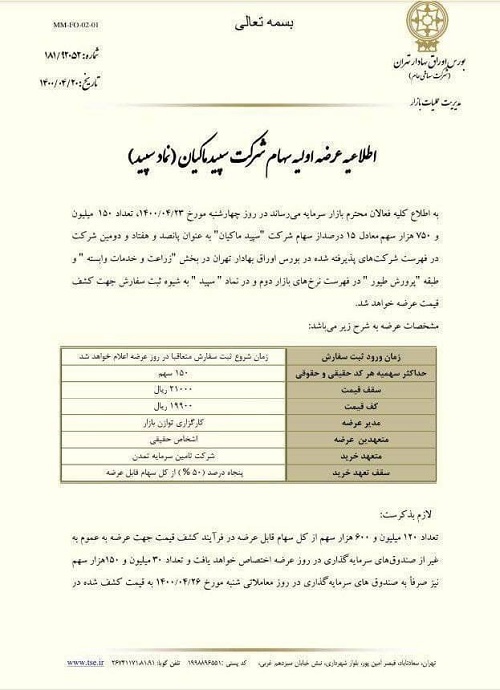 بسمه تعالی
MM-FO-02-01
بورس اوراق بهادار تهران
(شرکت سهامی عام)
مدیریت عملیات بازار
شماره: ۱۸۱/۹۲۰۵۲
تاریخ: ۱۴۰۰/۰۴/۲۰
اطلاعیه عرضه اولیه سهام شرکت سپید ماکیان (نماد سپید)
به اطلاع کلیه فعالان محترم بازار سرمایه می‌رساند در روز چهارشنبه مورخ ۱۴۰۰/۰۴/۲۳، تعداد ۱۵۰ میلیون
و ۷۵۰ هزار سهم معادل ۱۵ درصداز سهام شرکت "سپید ماکیان" به عنوان پانصد و هفتاد و دومین شرکت
در فهرست شرکت‌های پذیرفته شده در بورس اوراق بهادار تهران در بخش "زراعت و خدمات وابسته " و
طبقه "پرورش طیور " در فهرست نرخ‌های بازار دوم و در نماد " سپید " به شیوه ثبت سفارش جهت کشف
قیمت عرضه خواهد شد.
مشخصات عرضه به شرح زیر می‌باشد:
زمان ورود ثبت سفارش زمان شروع ثبت سفارش متعاقبا در روز عرضه اعلام خواهد شد
حداکثر سهمیه هر کد حقیقی و حقوقی ۱۵۰ سهم
سقف قیمت ۲۱۰۰۰ ریال
کف قیمت ۱۹۹۰۰ ریال
مدیر عرضه کارگزاری توازن بازار
متعهدین عرضه اشخاص حقیقی
متعهد خرید شرکت تامین سرمایه تمدن
سقف تعهد خرید پنجاه درصد (۵۰ %) از کل سهام قابل عرضه
لازم بذکرست:
تعداد ۱۲۰ میلیون و ۶۰۰ هزار سهم از کل سهام قابل عرضه در فرآیند کشف قیمت جهت عرضه به عموم به
غیر از صندوق‌های سرمایه‌گذاری در روز عرضه اختصاص خواهد یافت و تعداد ۳۰ میلیون و ۱۵۰هزار سهم
نیز صرفاً به صندوق های سرمایه‌گذاری در روز معاملاتی شنبه مورخ ۱۴۰۰/۰۴/۲۶ به قیمت کشف شده در
تهران، سعادتآباد قیصر امین پور، بلوار شهرداری، نبش خیابان سیزدهم غربی، کد پستی: ۱۹۹۸۸۹۶۵۵۱ تلفن گویا: www.tse.ir